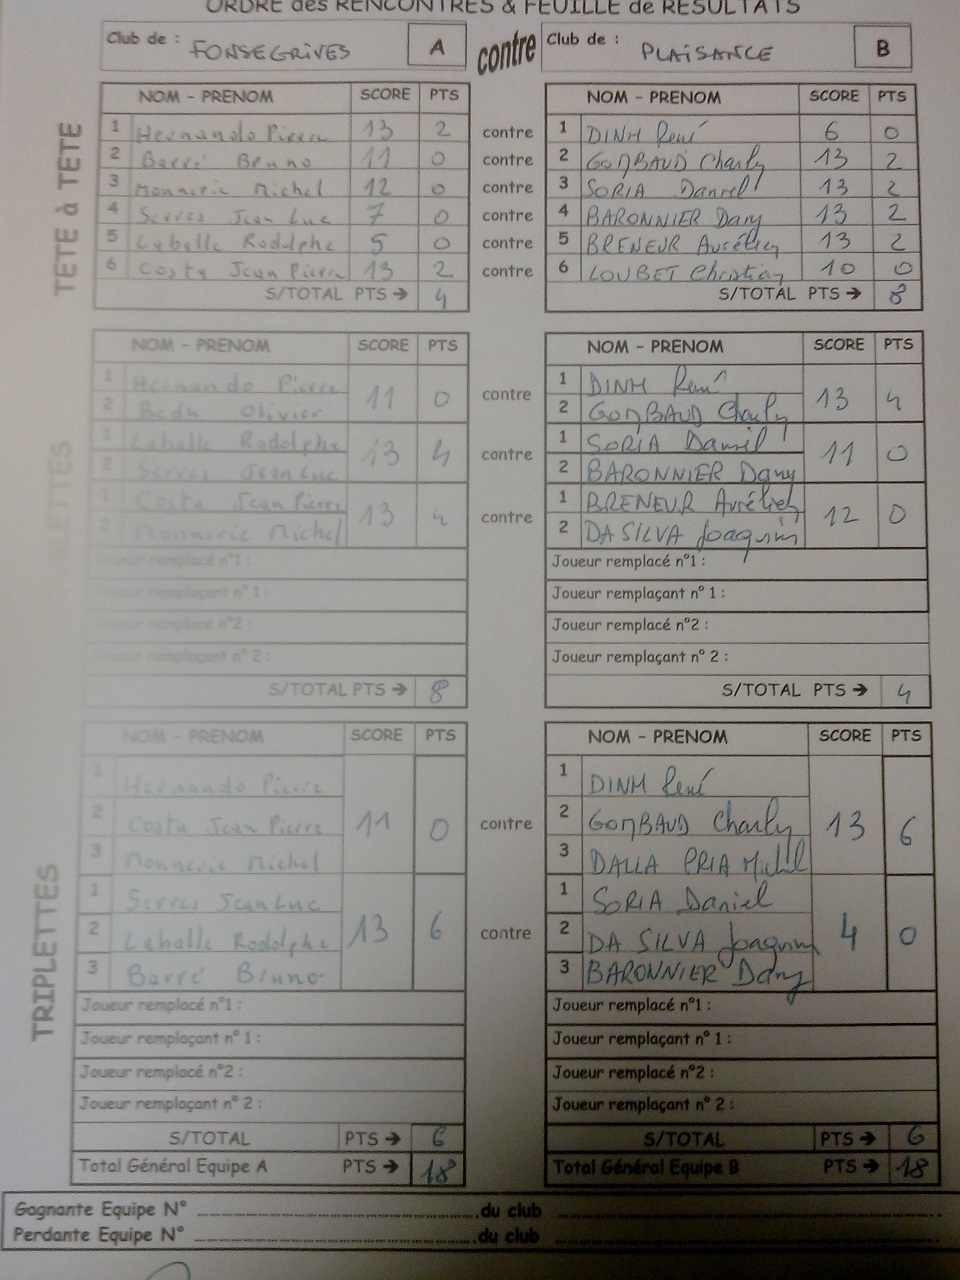 ORDRE des RENCONTRES & FEUILLE de RESULTATS
Club de : FONSEGRIVES A contre Club de : PLAISANCE B
TÊTE à TÊTE
NOM - PRENOM SCORE PTS NOM - PRENOM SCORE PTS
1 Hernando Pierre 13 2 contre 1 DINH René 6 0
2 Barré Bruno 11 0 contre 2 GOMBAUD Charly 13 2
3 Monnerie Michel 12 0 contre 3 SORIA Daniel 13 2
4 Serres Jean Luc 7 0 contre 4 BARONNIER Dany 13 2
5 Laballe Rodolphe 5 0 contre 5 BRENEUR Aurélien 13 2
6 Costa Jean Pierre 13 2 contre 6 LOUBET Christian 10 0
S/TOTAL PTS → 4 S/TOTAL PTS → 8
NOM - PRENOM SCORE PTS NOM - PRENOM SCORE PTS
1 Hernando Pierre 11 0 contre 1 DINH René 13 4
2 Badu Olivier 2 GOMBAUD Charly
1 Laballe Rodolphe 13 4 contre 1 SORIA Daniel 11 0
2 Serres Jean Luc 2 BARONNIER Dany
1 Costa Jean Pierre 13 4 contre 1 BRENEUR Aurélien 12 0
2 Monnerie Michel 2 DA SILVA Joaquim
Joueur remplacé n°1 : Joueur remplacé n°1 :
Joueur remplaçant n° 1 : Joueur remplaçant n° 1 :
Joueur remplacé n°2 : Joueur remplacé n°2 :
Joueur remplaçant n° 2 : Joueur remplaçant n° 2 :
S/TOTAL PTS → 8 S/TOTAL PTS → 4
TRIPLETTES
NOM - PRENOM SCORE PTS NOM - PRENOM SCORE PTS
1 Hernando Pierre 1 DINH René
2 Costa Jean Pierre 11 0 contre 2 GOMBAUD Charly 13 6
3 Monnerie Michel 3 DALLA PRIA Michel
1 Serres Jean Luc 1 SORIA Daniel
2 Laballe Rodolphe 13 6 contre 2 DA SILVA Joaquim 4 0
3 Barré Bruno 3 BARONNIER Dany
Joueur remplacé n°1 : Joueur remplacé n°1 :
Joueur remplaçant n° 1 : Joueur remplaçant n° 1 :
Joueur remplacé n°2 : Joueur remplacé n°2 :
Joueur remplaçant n° 2 : Joueur remplaçant n° 2 :
S/TOTAL PTS → 6 S/TOTAL PTS → 6
Total Général Equipe A PTS → 18 Total Général Equipe B PTS → 18
Gagnante Equipe N° du club
Perdante Equipe N° du club